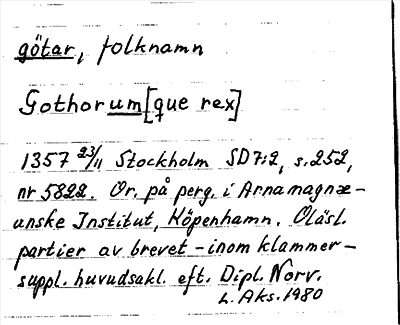 götar, folknamn
Gothorum[que rex]
1357 23/11 Stockholm SD7:2, s.252,
nr 5822. Or. på perg. i Arnamagnæ-
anske Institut, Köpenhamn. Oläsl.
partier av brevet - inom klammer -
suppl. huvudsakl. eft. Dipl. Norv.
L. Aks. 1980